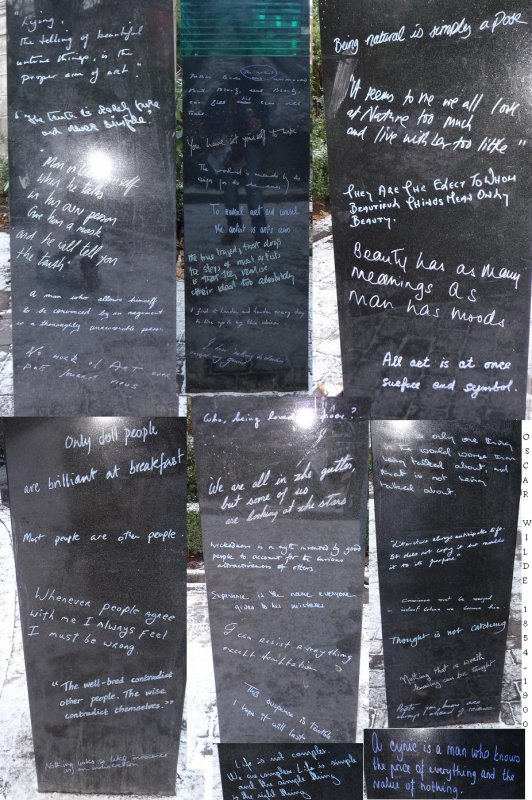 Lying,
the telling of beautiful
untrue things, is the
proper aim of art."
"The truth is rarely pure
and never simple"
"Man is least himself
when he talks
in his own person
Give him a mask
and he will tell you
the truth"
A man who allows himself
to be convinced by an argument
is a thoroughly unreasonable person
No work of Art ever
puts forward views
You have it yourself to
To reveal art and conceal
the artist is art's aim
the true tragedy that dogs
the steps of most artists
is that they realise
their ideal too absolutely
I find it harder and harder every day
to live up to my blue china
Being natural is simply a pose
"It seems to me we all look
at Nature too much
and live with her too little"
THEY ARE THE ELECT TO WHOM
BEAUTIFUL THINGS MEAN ONLY
BEAUTY.
Beauty has as many
meanings as
man has moods
All art is at once
surface and symbol.
Only dull people
are brilliant at breakfast
Most people are other people.
Whenever people agree
with me I always feel
I must be wrong.
"The well-bred contradict
other people. The wise
contradict themselves."
Nothing looks so like innocence
as an indiscretion
Who, being loved, is poor?
We are all in the gutter,
but some of us
are looking at the stars
Wickedness is a myth invented by good
people to account for the curious
attractiveness of others
Experience is the name everyone
gives to his mistakes
I can resist everything
except temptation
This suspense is terrible
I hope it will last
is only one thing
in the world worse than
being talked about, and
that is not being
talked about.
"Literature always anticipates life.
It does not copy it but moulds
it to its purpose"
Thought is not catching
Nothing that is worth
knowing can be taught
Life is not complex.
We are complex. Life is simple
and the simple thing
is the right thing
A cynic is a man who knows
the price of everything and the
value of nothing.
OSCAR WILDE 1854-1900